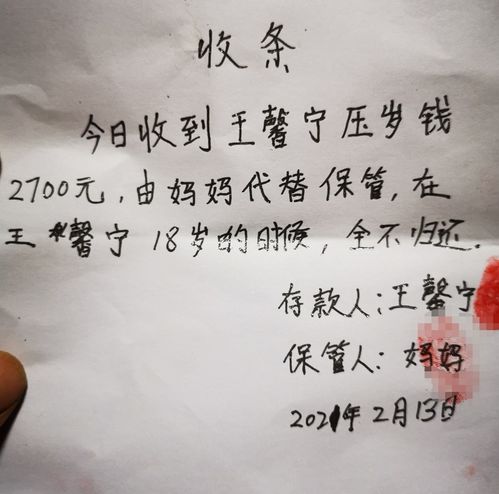 收条
今日收到王馨宁压岁钱
2700元,由妈妈代替保管,在
王馨宁18岁的时候,全不归还.
存款人:王馨宁
保管人:妈妈
2021年2月13日